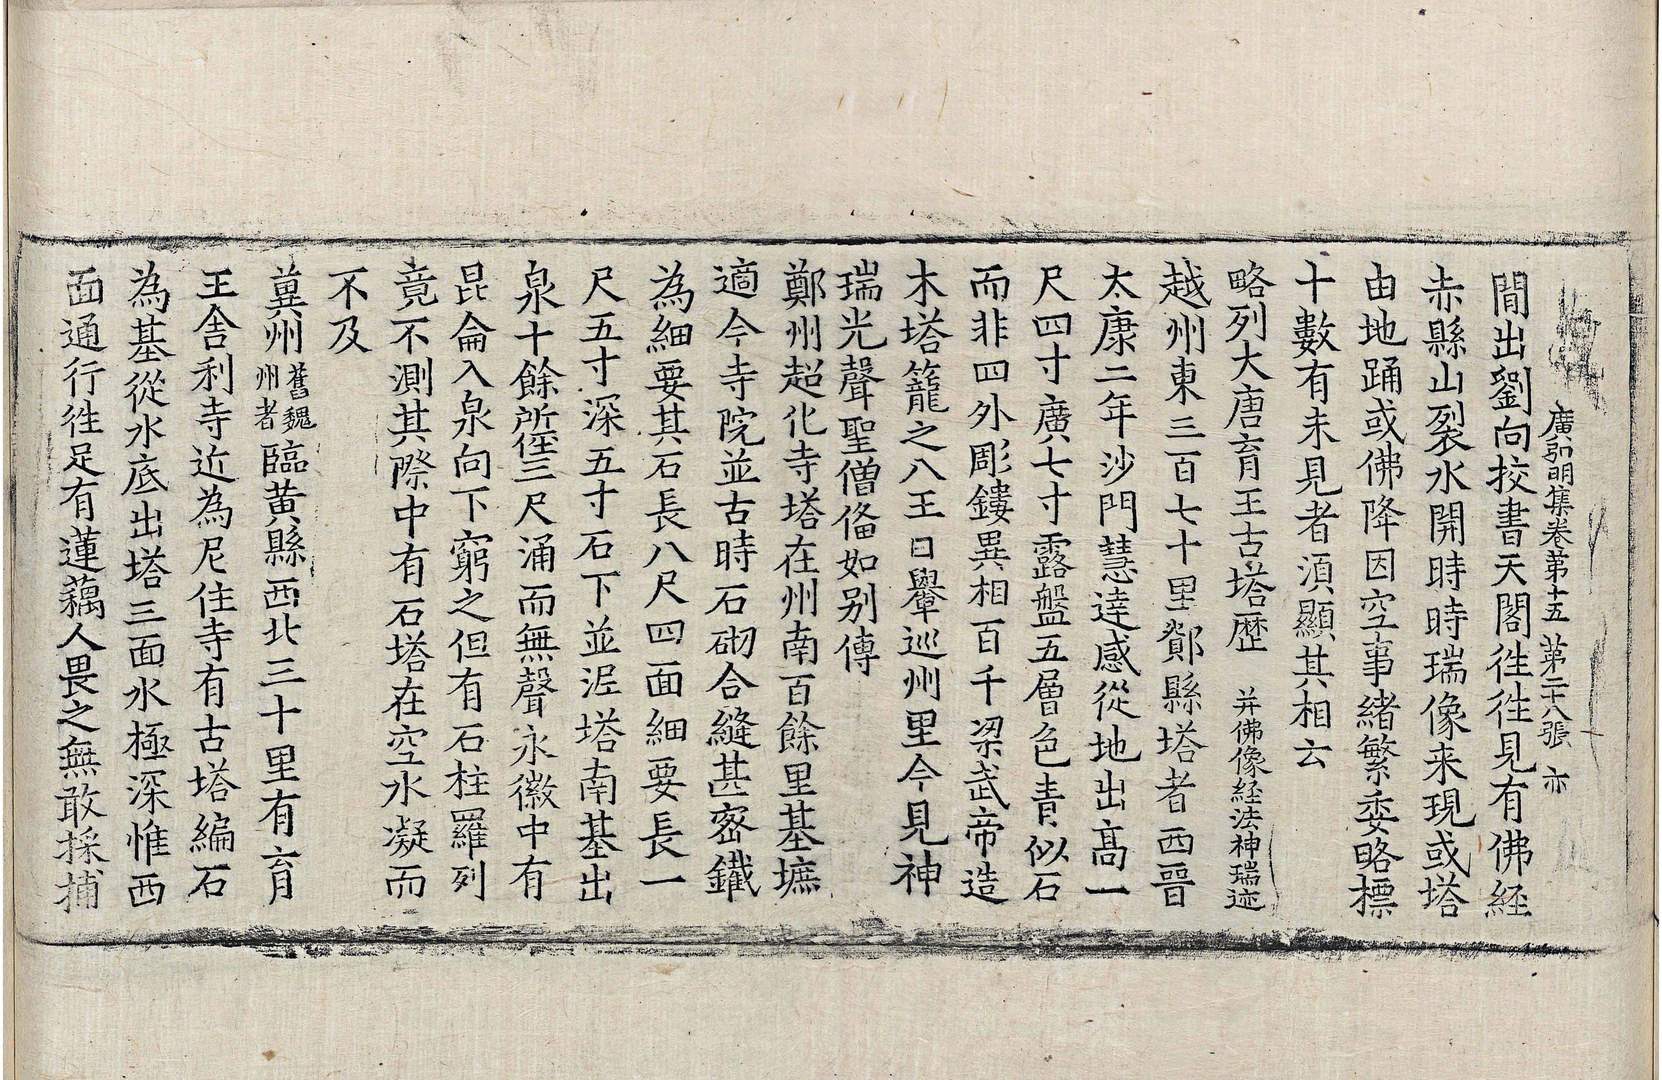 廣弘明集卷第十五 第二十八張 亦
間出劉向挍書天閣徃徃見有佛経
赤縣山裂水開時時瑞像来現或塔
由地踊或佛降因空事緒繁委略標
十數有未見者湏顯其相云
略列大唐育王古塔歴 并佛像経法神瑞迹
越州東三百七十里鄮縣塔者西晉
太康二年沙門慧達感從地出高一
尺四寸廣七寸露盤五層色青似石
而非四外彫鏤異相百千梁武帝造
木塔籠之八王日轝巡州里今見神
瑞光聲聖僧俻如别傳
鄭州超化寺塔在州南百餘里基墌
適今寺院並古時石砌合縫甚宻鐵
為細要其石長八尺四面細要長一
尺五寸深五寸石下並泥塔南基出
泉十餘所徑三尺涌而無聲永徽中有
昆侖入泉向下窮之但有石柱羅列
竟不測其際中有石塔在空水凝而
不及
冀州舊魏州者臨黄縣西北三十里有育
王舍利寺近為尼住寺有古塔編石
為基從水底出塔三面水極深惟西
面通行徃足有蓮藕人畏之無敢採捕